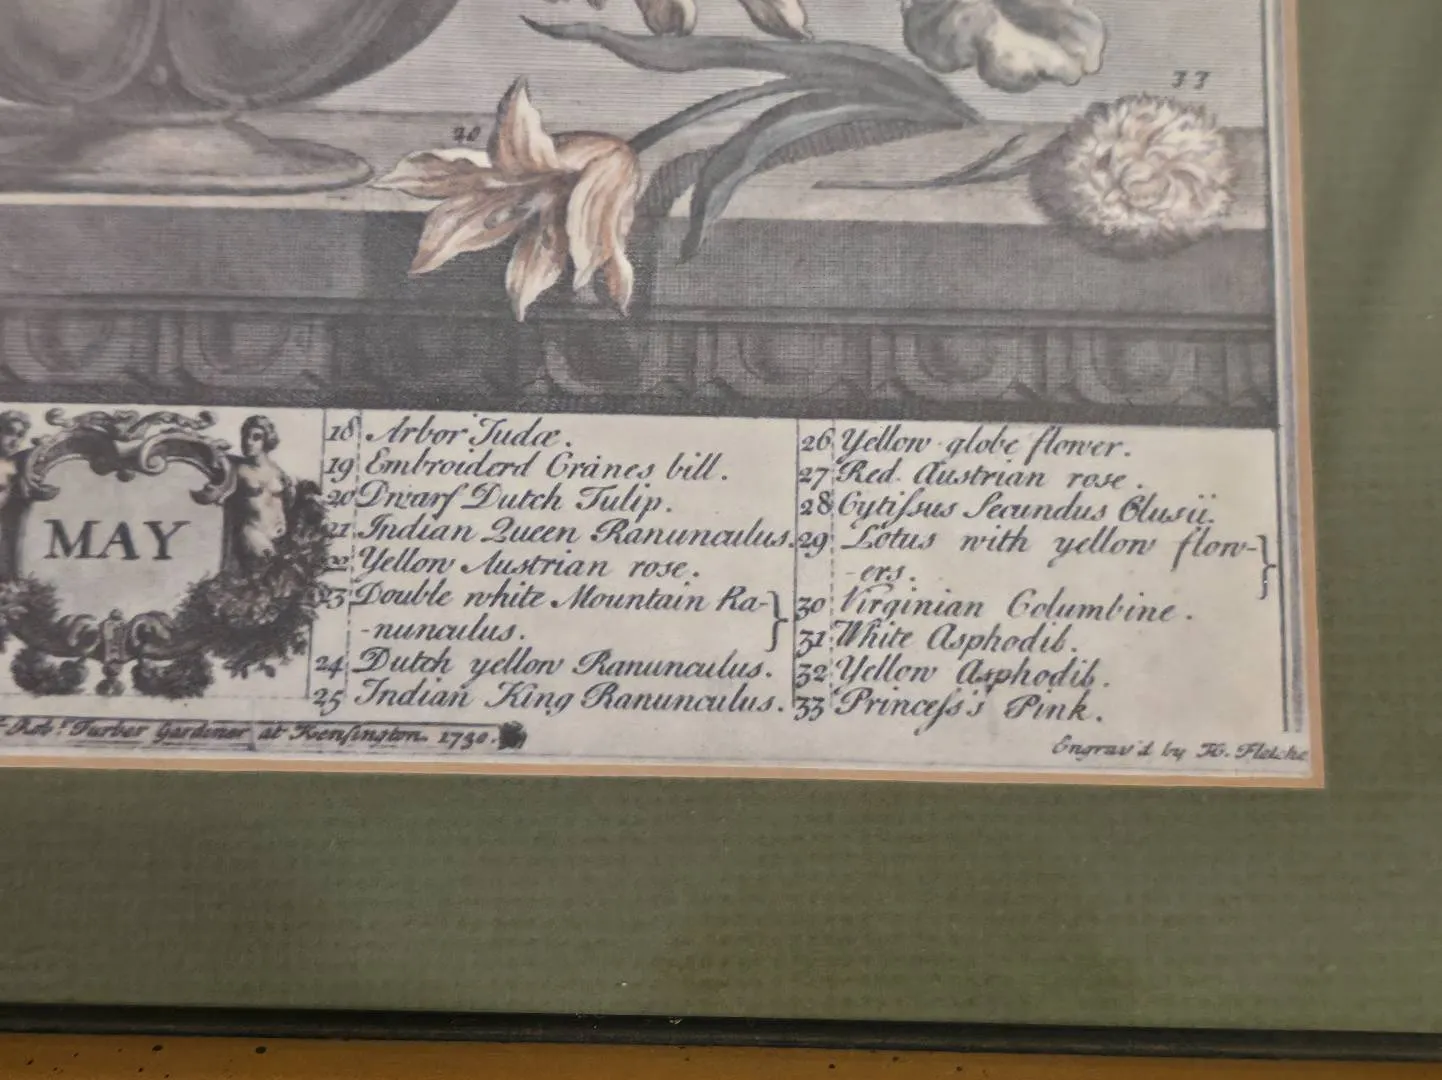 33
20
MAY
18 Arbor Judæ.
19 Embroiderd Cranes bill.
20 Dwarf Dutch Tulip.
21 Indian Queen Ranunculus.
22 Yellow Austrian rose.
23 Double white Mountain Ra-
-nunculus.
24 Dutch yellow Ranunculus.
25 Indian King Ranunculus.
26 Yellow globe flower.
27 Red Austrian rose.
28 Cytiſsus Secundus Clusii.
29 Lotus with yellow flow-
-ers.
30 Virginian Columbine.
31 White Asphodil.
32 Yellow Asphodil.
33 Princeſs's Pink.
Robt. Furber Gardiner at Kenſington. 1730.
Engrav'd by H. Fletche